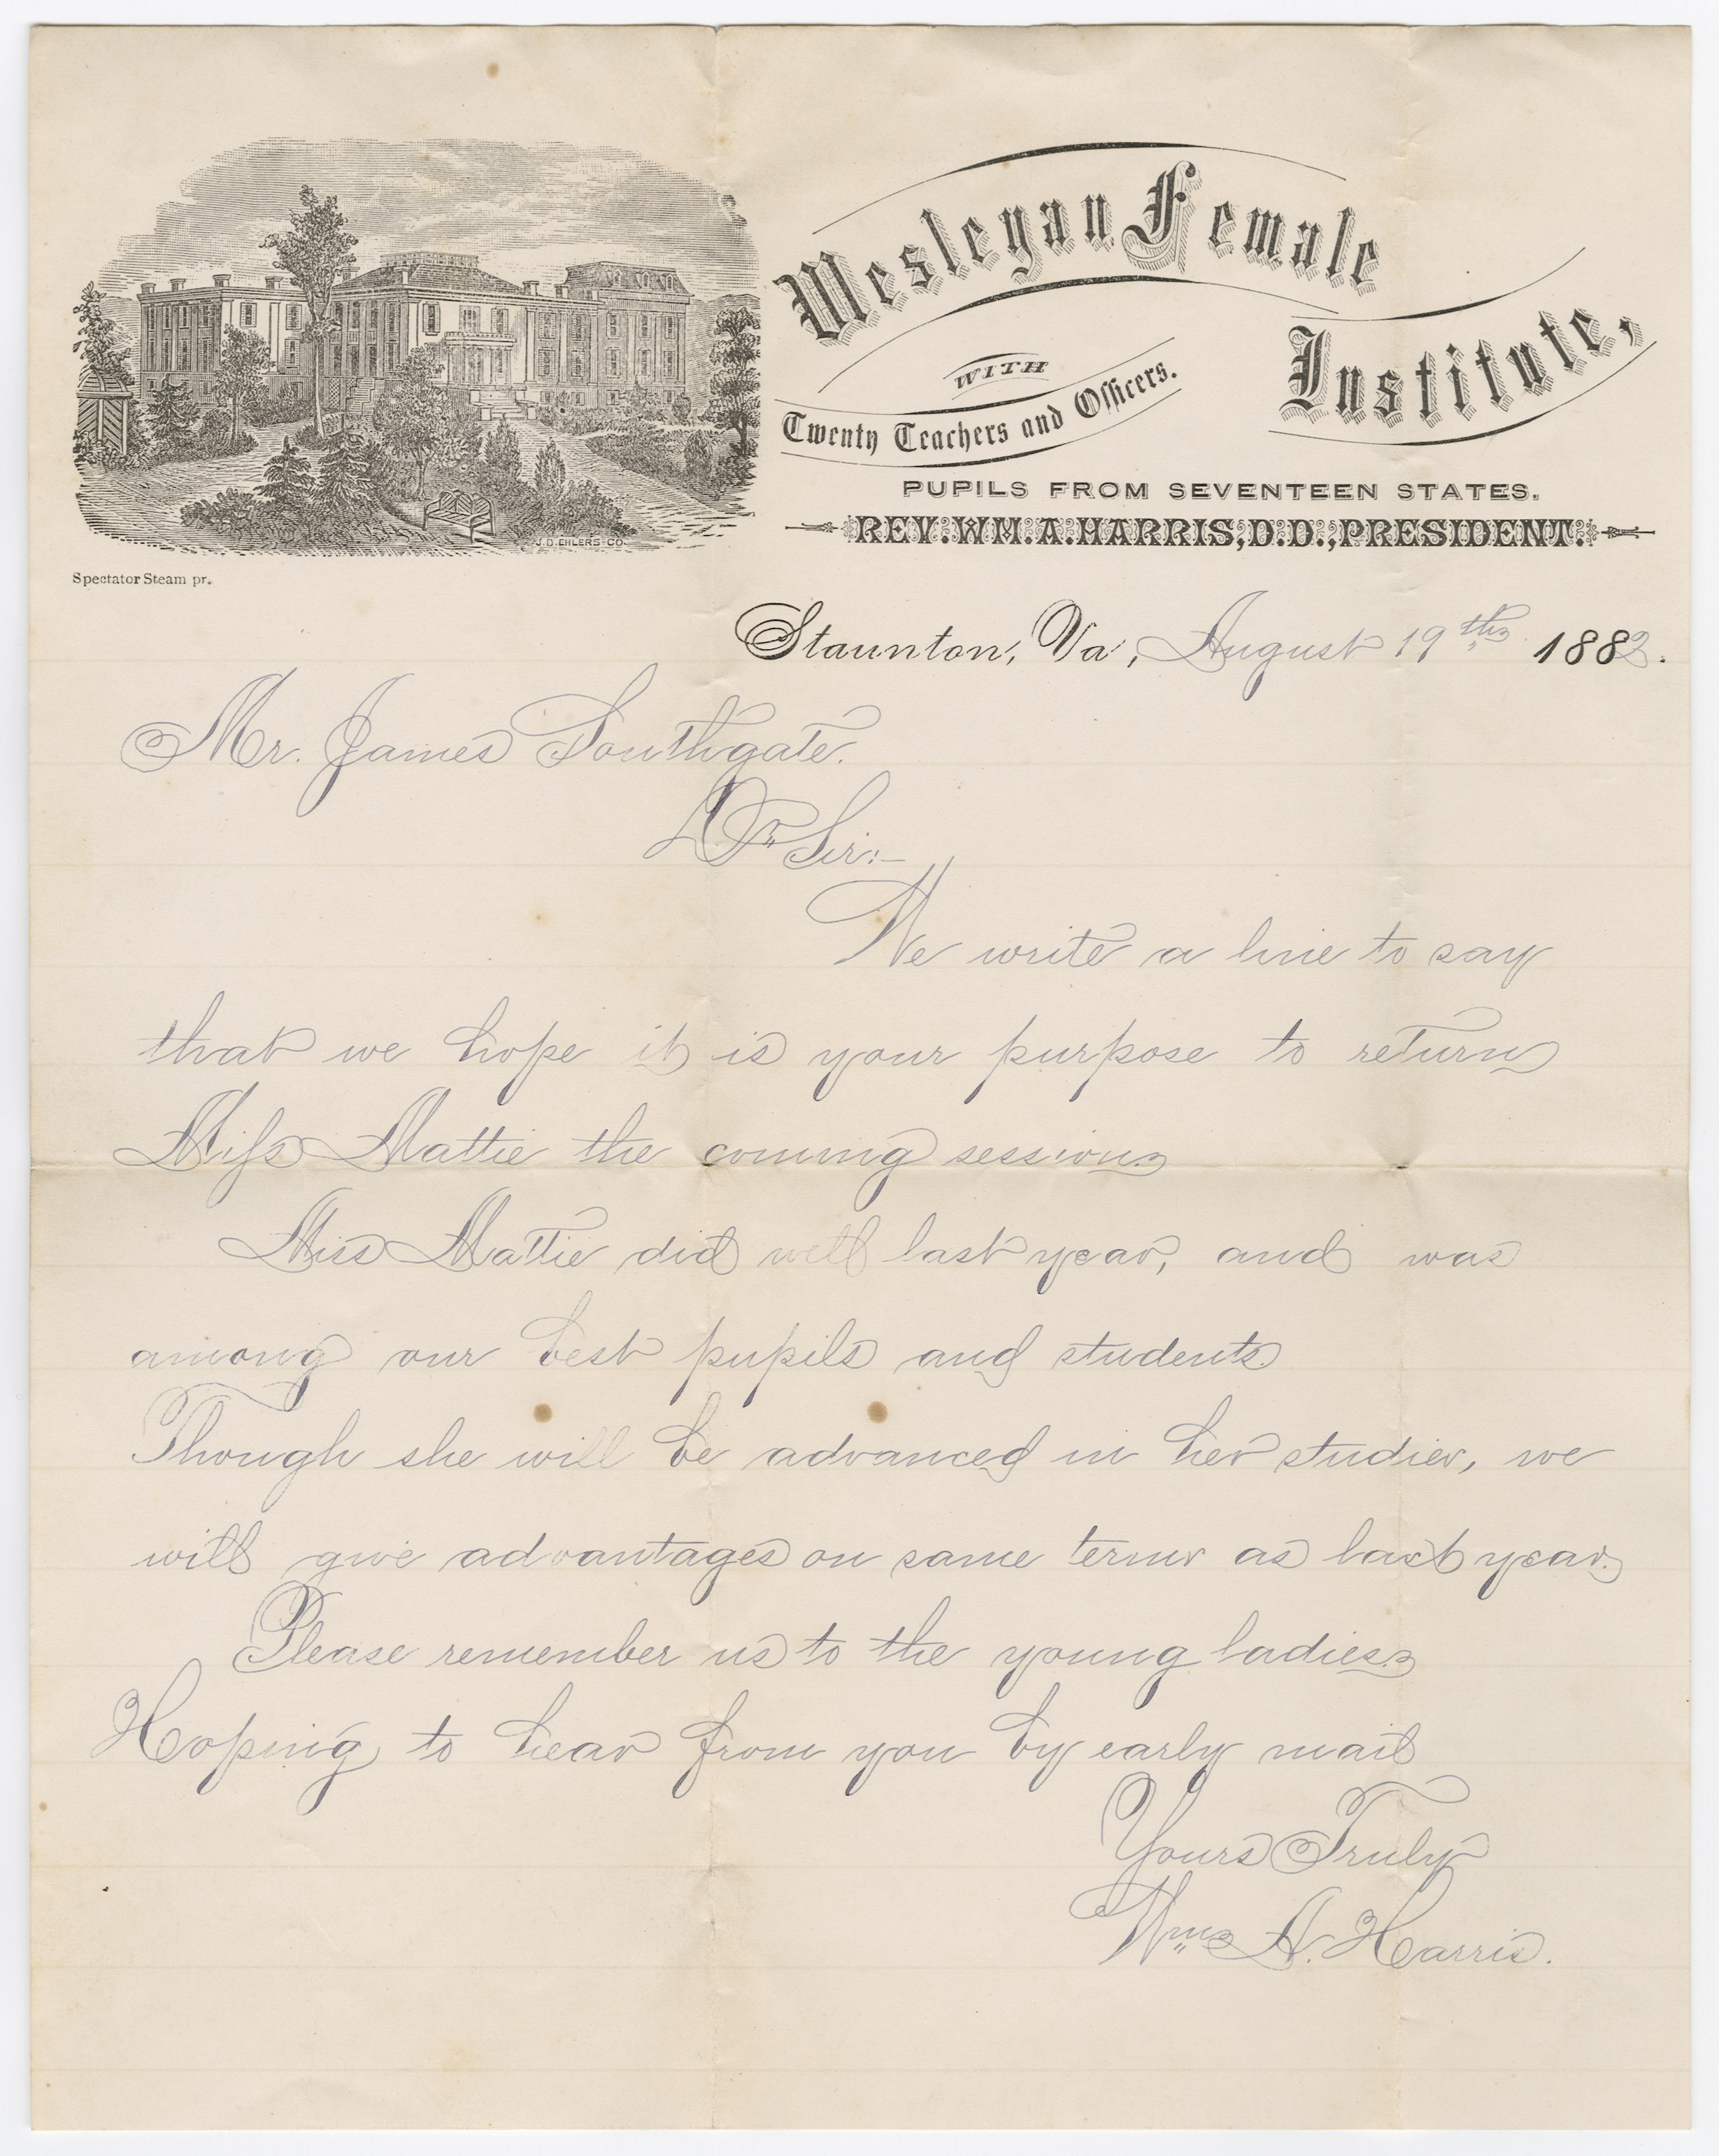 Wesleyan Female
Institute,
WITH
Twenty Teachers and Officers.
PUPILS FROM SEVENTEEN STATES.
REV. WM. A. HARRIS, D. D., PRESIDENT.
J. D. EHLERS CO.
Spectator Steam pr.
Staunton, Va, August 19th 1882.
Mr. James Southgate.
Dr Sir:-
We write a line to say
that we hope it is your purpose to return
Miss Mattie the coming session
Miss Mattie did well last year, and was
among our best pupils and students
Though she will be advanced in her studies, we
will give advantages on same terms as last year.
Please remember us to the young ladies.
Hoping to hear from you by early mail
Yours Truly
Wm A. Harris.